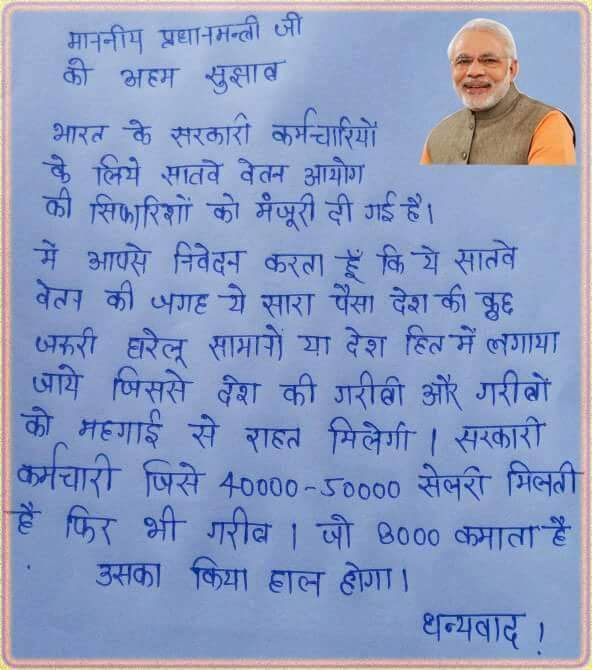 माननीय प्रधानमन्त्री जी
की अहम सुझाव
भारत के सरकारी कर्मचारियों
के लिये सातवे वेतन आयोग
की सिफारिशों को मंजूरी दी गई है।
में आपसे निवेदन करता हूँ कि ये सातवे
वेतन की जगह ये सारा पैसा देश की कुछ
जरुरी घरेलू सामानों या देश हित में लगाया
जाये जिससे देश की गरीबी और गरीबो
को महगाई से राहत मिलेगी । सरकारी
कर्मचारी जिसे 40000-50000 सेलरी मिलती
है फिर भी गरीब । जो 8000 कमाता है
उसका किया हाल होगा।
धन्यवाद !